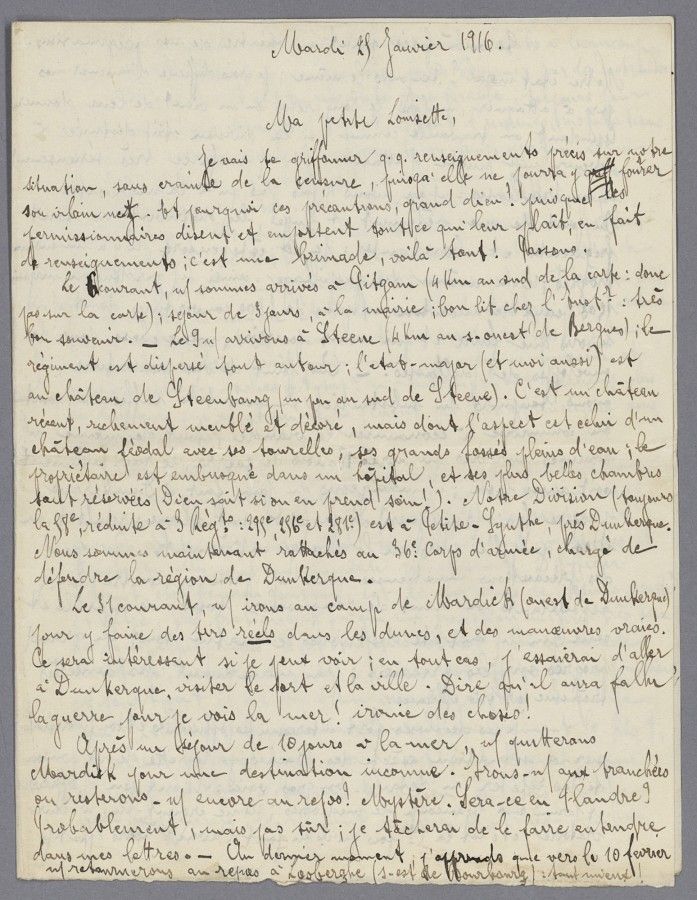 Mardi 25 Janvier 1916.
Ma petite Louisette,
Je vais te griffonner q.q. renseignements précis sur notre
situation, sans crainte de la censure, puisqu'elle ne pourra y fourrer
son vilain nez. Et pourquoi ces précautions, grand dieu! puisque les
permissionnaires disent et emportent tout ce qui leur plaît, en fait
de renseignements; c'est une brimade, voilà tout! Passons.
Le 6 courant, n/ sommes arrivés à Pitgam (4 Km au sud de la carte: donc
pas sur la carte); séjour de 3 jours, à la mairie; bon lit chez l': très
bon souvenir. — Le 9 n/ arrivons à Steene (4 Km au s-ouest de Bergues); le
régiment est dispersé tout autour; l'état-major (et moi aussi) est
au château de Steenbourg (un peu au sud de Steene). C'est un château
récent, richement meublé et décoré, mais dont l'aspect est celui d'un
château féodal avec ses tourelles, ses grands fossés pleins d'eau; le
propriétaire est embusqué dans un hôpital, et ses plus belles chambres
sont réservées (Dieu sait si on en prend soin!). Notre Division (toujours
la 58e, réduite à 3 Régts: 295e, 256e et 281e) est à Petite-Synthe, près Dunkerque.
Nous sommes maintenant rattachés au 36e Corps d'armée, chargé de
défendre la région de Dunkerque.
Le 31 courant, n/ irons au camp de Mardick (ouest de Dunkerque)
pour y faire des tirs réels dans les dunes, et des manœuvres vraies.
Ce sera intéressant si je peux voir; en tout cas, j'essaierai d'aller
à Dunkerque, visiter le port et la ville. Dire qu'il aura fallu
la guerre pour je vois la mer! ironie des choses!
Après un séjour de 10 jours à la mer, n/ quitterons
Mardick pour une destination inconnue. Irons-n/ aux tranchées
ou resterons-n/ encore au repos? Mystère. Sera-ce en Flandre?
Probablement, mais pas sûr; je tâcherai de le faire entendre
dans mes lettres. — Au dernier moment, j'apprends que vers le 10 février
n/ retournerons au repos à Looberghe (s-est de Bourbourg): tant mieux!